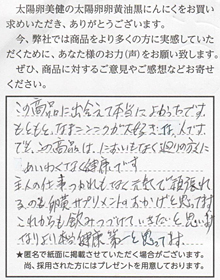 太陽卵美健の太陽卵卵黄油黒にんにくをお買い
求めいただき、ありがとうございます。
今、弊社では商品をより多くの方に実感していた
だくために、あなた様のお力(声)をお願い致します。
ぜひ、商品に対するご意見やご感想などお寄せ
ください。
この商品に出会えて本当によかったです。
もともと、なまニンニクが大好きな人です
でも、この商品は、においもなく辺りの方に
めいわくなく健康です
主人の仕事つかれもなく元気で頑張れ
るのも卵黄サプリメントのおかげと思ってます
これからも飲みつづけていきたいと思います
なりより 健康第一と思ってます。
★匿名で紙面に掲載させていただく場合がございます。
尚、採用された方にはプレゼントを用意しております。